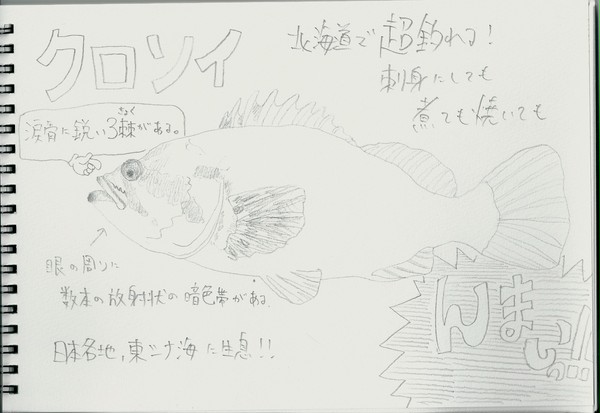 クロソイ
北海道で超釣れる!
刺身にしても
煮ても焼いても
涙骨に鋭い3棘がある。
きょく
眼の周りに
数本の放射状の暗色帯がある。
日本各地、東シナ海に生息!!
うまっ!!